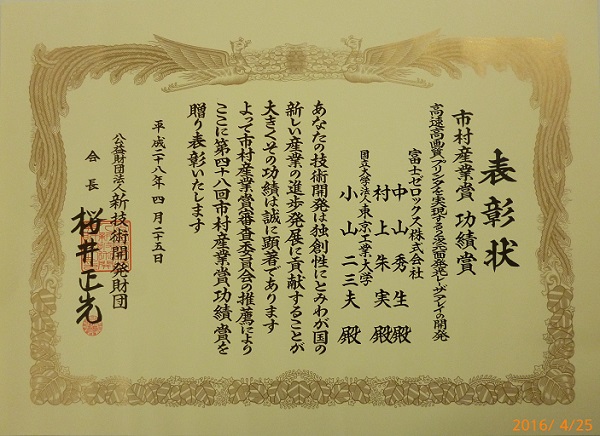 表彰状
市村産業賞 功績賞
高速高画質プリンタを実現する2次元面発光レーザアレイの開発
富士ゼロックス株式会社
中山秀生殿
村上朱実殿
国立大学法人東京工業大学
小山二三夫殿
あなたの技術開発は独創性にとみわが国の
新しい産業の進歩発展に貢献することが
大きくその功績は誠に顕著であります
よって市村産業賞審査委員会の推薦により
ここに第四十八回市村産業賞功績賞を
贈り表彰いたします
平成二十八年四月二十五日
公益財団法人新技術開発財団
会長 桜井正光
2016/ 4/25